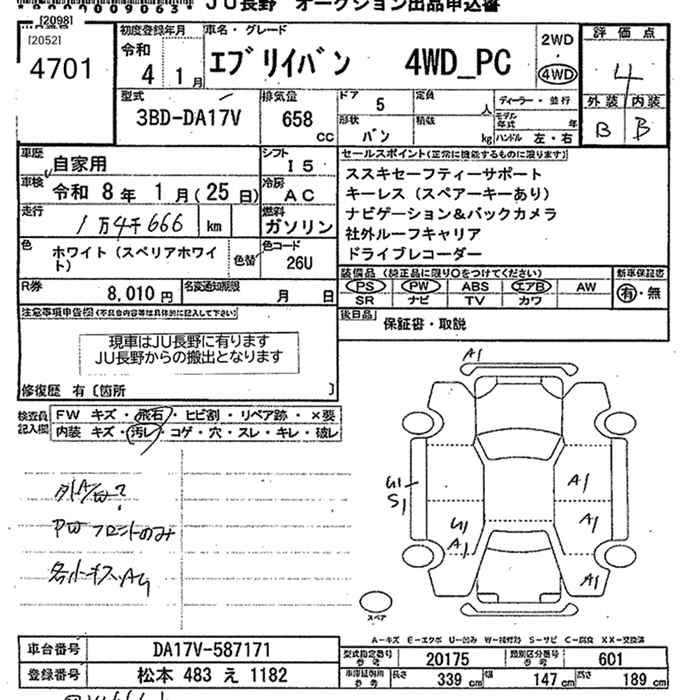 JU長野 オークション出品申込書
[2098]
[2052]
4701
初度登録年月
令和
4 1月
車名・グレード
エブリイバン 4WD_PC
2WD
4WD
評価点
4
外装 内装
B B
型式
3BD-DA17V
排気量
658
cc
ドア 5
定員 人
形状 バン
積載 kg
ディーラー・並行
モデル年式 年
ハンドル 左・右
車歴
自家用
シフト
I 5
車検
令和 8年 1月(25日)
冷房
AC
走行
1万4千666 km
燃料
ガソリン
色
ホワイト(スペリアホワイト)
色替
色コード
26U
R券
8,010円
名変通知期限
月 日
セールスポイント(正常に機能するものに限ります)
ススキセーフティーサポート
キーレス(スペアーキーあり)
ナビゲーション&バックカメラ
社外ルーフキャリア
ドライブレコーダー
装備品(純正品に限り○をつけてください)
PS PW ABS エアB AW
SR ナビ TV カワ
新車保証書
有・無
後日品
保証書・取説
注意事項申告欄(不具合内容等は具体的に記入して下さい)
現車はJU長野に有ります
JU長野からの搬出となります
修復歴 有〔箇所 〕
検査員記入欄
FW キズ・飛石・ヒビ割・リペア跡・×要
内装 キズ・汚レ・コゲ・穴・スレ・キレ・破レ
PWフロントのみ
A1
G1
S1
G1
A1
A1
A1
A1
スペア
A-キズ E-エクボ U-凹み W-補修跡 S-サビ C-腐食 XX-交換済
車台番号
DA17V-587171
登録番号
松本 483 え 1182
型式指定番号
参考
20175
類別区分番号
参考
601
車検証記載
参考
長さ 339cm
幅 147cm
高さ 189cm